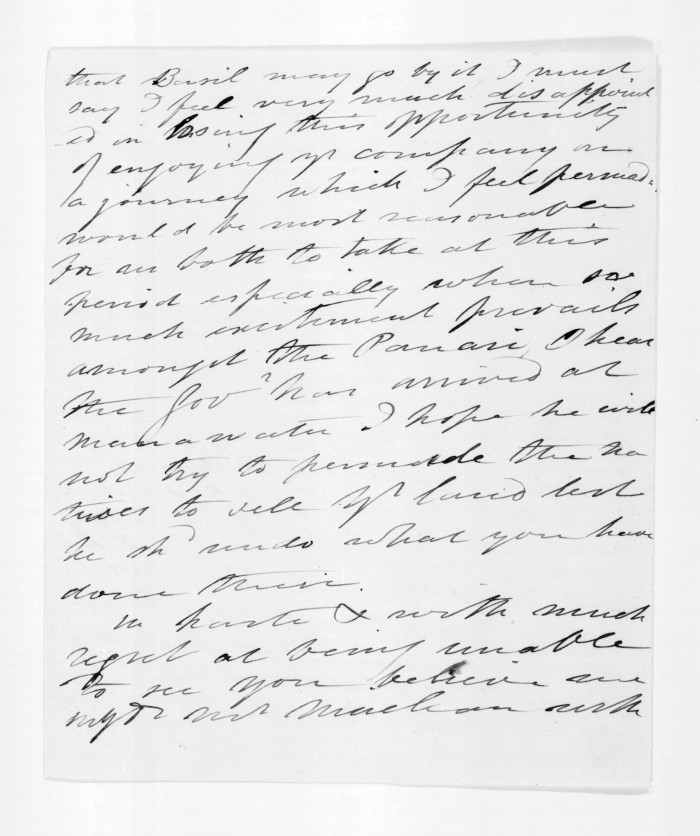 that Basil may go by it I must
say I feel very much disappoint
-ed in losing this opportunity
of enjoying yr company on
a journey which I feel persuaded
would be most reasonable
for us both to take at this
period especially when so
much excitement prevails
amongst the I hear
the Govr has arrived at
Manawatu I hope he will
not try to persuade the na
tives to sell yr land lest
he shd undo what you have
done there.
In haste & with much
regret at being unable
to see you believe me
my dr Mr Maclean with